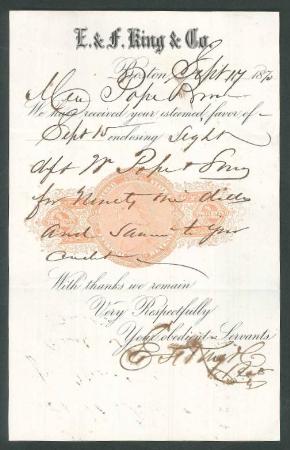 E. & F. King & Co.
Boston, Sept 17 187
Pope Bro
We have received your esteemed favor of
Sept 15 enclosing Sight
dft W Pope & Sons
for Ninety
and
With thanks we remain
Very Respectfully
Your obedient Servants
E & F King & Co